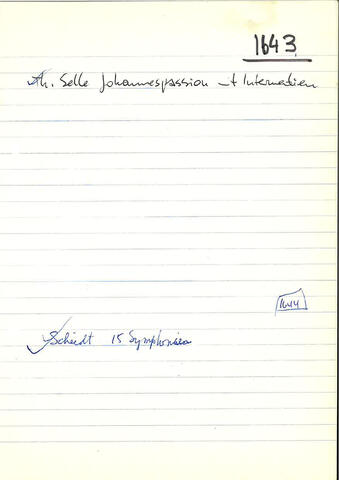 1643
Th. Selle Johannespassion mit Intermedien
1644
Scheidt 15 Symphonien